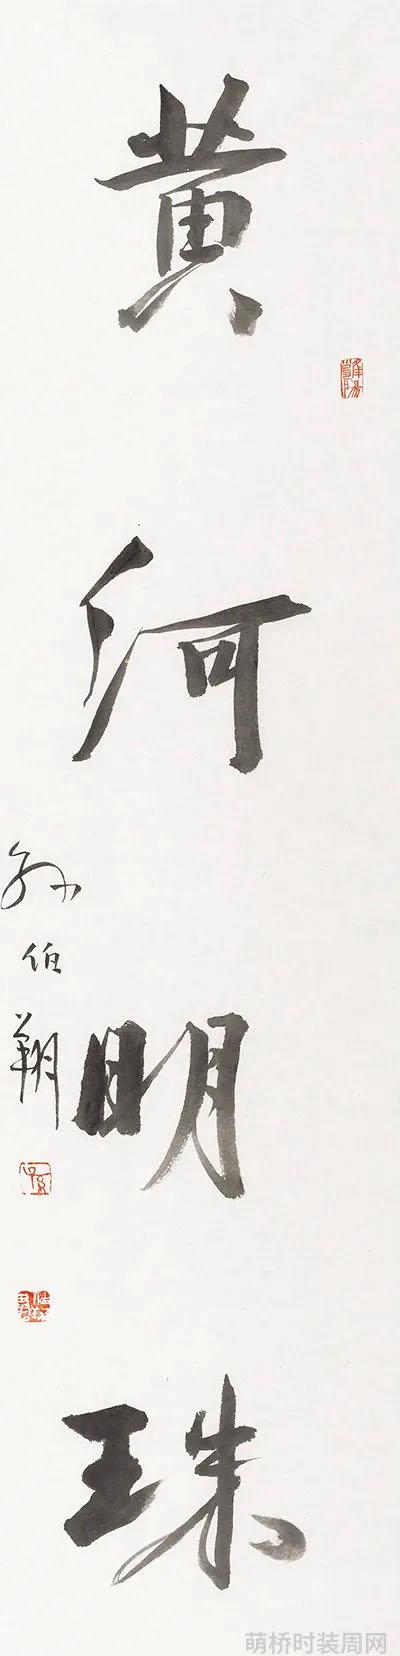 黄河明珠
孙伯翔
萌桥时装周网